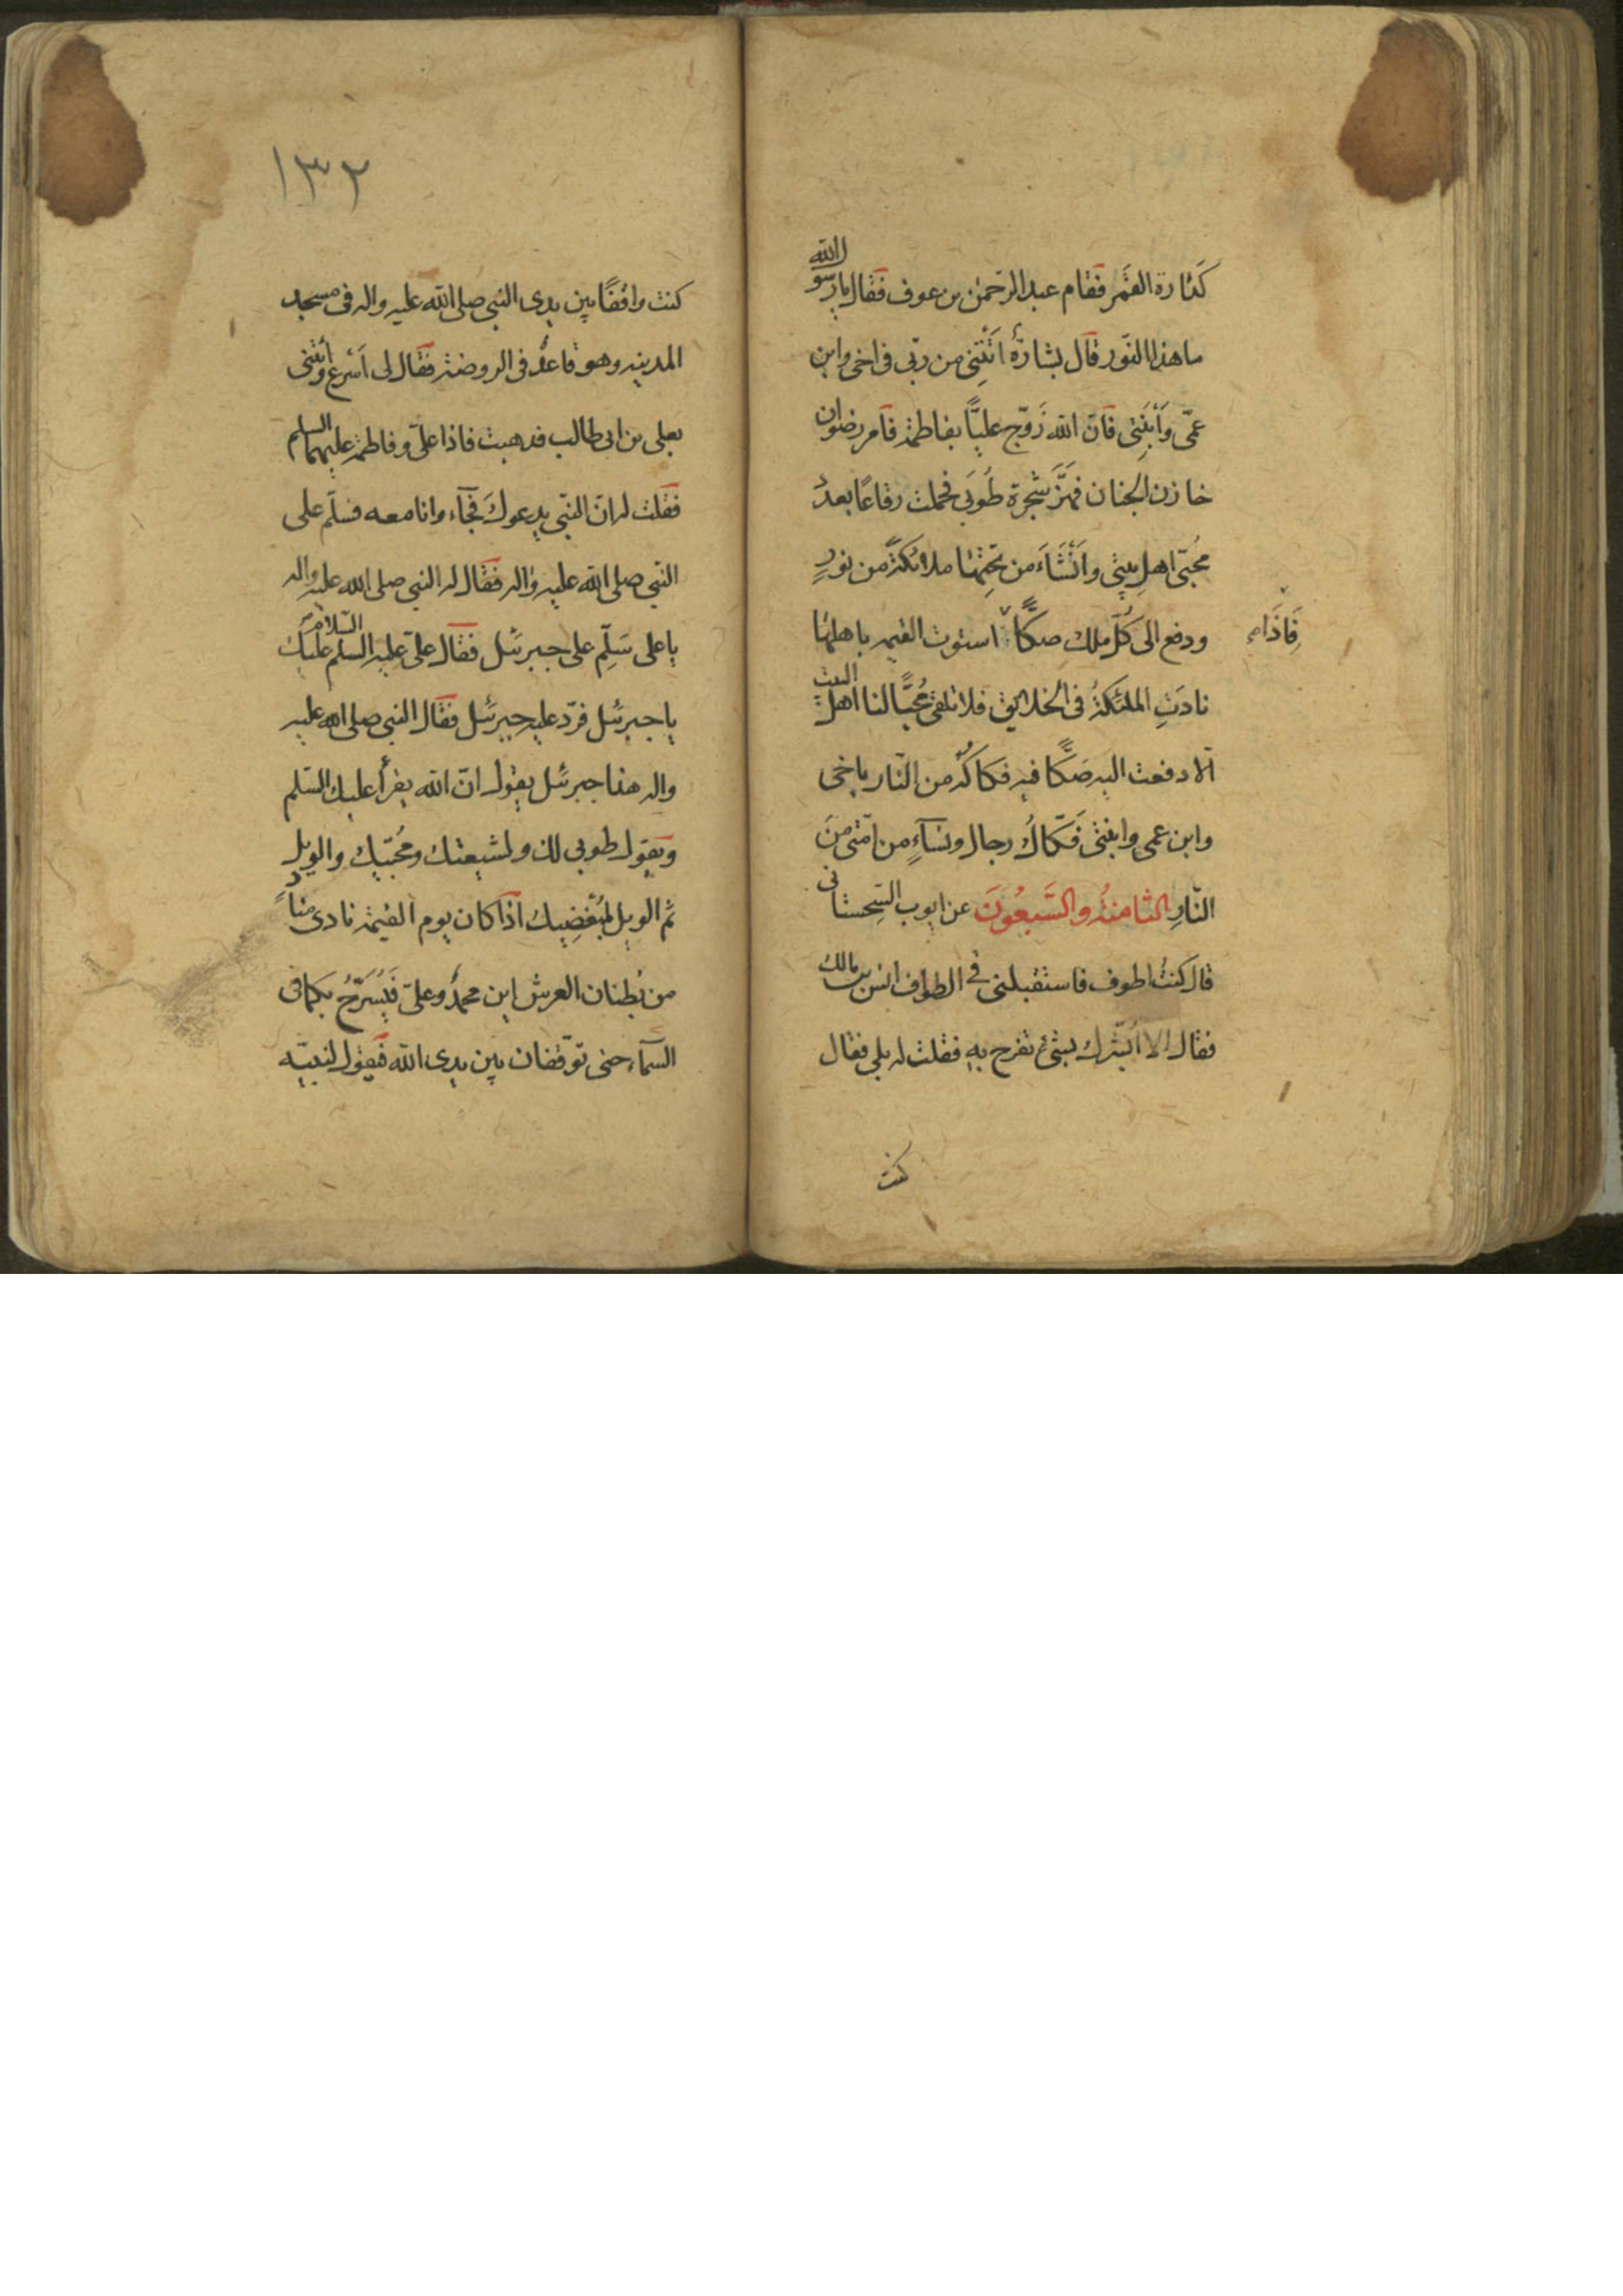 كَدَارة القَمَر فقام عبد الرّحمٰن بن عوف فقال يا رسول الله
ما هذا النّور قال بشارةٌ أتَتْنِى من ربّى فى اخى وابن
عمّى وَاَبْنَتِى فانّ الله زَوّج عليًّا بفاطمة فامر رضوان
خازن الجنان فهَزَّ شجرة طُوبَى فحملت رقاعًا بعددِ
مُحبّى اهل بيتى واَنْشَاَء من تحِتها ملائكةً من نورٍ
ودفع الى كُلّ ملك صكًّا استوت القيمه باهلها
فَاِذَا
نادَتِ الملئكةُ فى الخلايق فلا تلقى مُحِبًّا لنا اهل البيت
الّا دفعت اليه صَكًّا فيه فكاكُه من النّار باخى
وابن عمى وابنتى فَكّاكُ رجال ونسآءٍ من امّتى مِنَ
النّارِ الثامنةُ والسَّبعُونَ عن ايوب السِّجستانى
قال كنتُ اطوف فاستقبلنى فى الطواف انس بن مالك
فقال الا اُبَشّرك بشئ تفرح به فقلت له بلى فقال
كنت
١٣٢
كنت واقفًا بين يدى النبى صلى الله عليه واله فى مسجد
المدينه وهو قاعدٌ فى الروضة فقال لى اَسْرِع وأتنى
بعلى بن ابى طالب فذهبت فاذا علىّ وفاطمة عليهما السلم
فقلت له انّ النّبى يدعوكَ فجآء وانا معه فسلّم على
النّبى صلى الله عليه واله فقال له النبى صلى الله عليه واله
يا على سَلِّم على جبرئيل فقال علىّ عليه السلم السّلام عليك
يا جبرئيل فردّ عليه جبرئيل فقال النبى صلى الله عليه
واله هذا جبرئيل يقول انّ الله يقرأ عليك السّلم
ويقول طوبى لك ولشيعتك ومُحبّيك والويل
ثم الويل لمُبْغضِيك اذا كان يوم القيمة نادى منادٍ
من بُطنان العرش اين محمدٌ وعلىّ فَيُسَرّحُ بكما فى
السّمآء حتى توقفان بين يدى الله فيقول لنبيّه